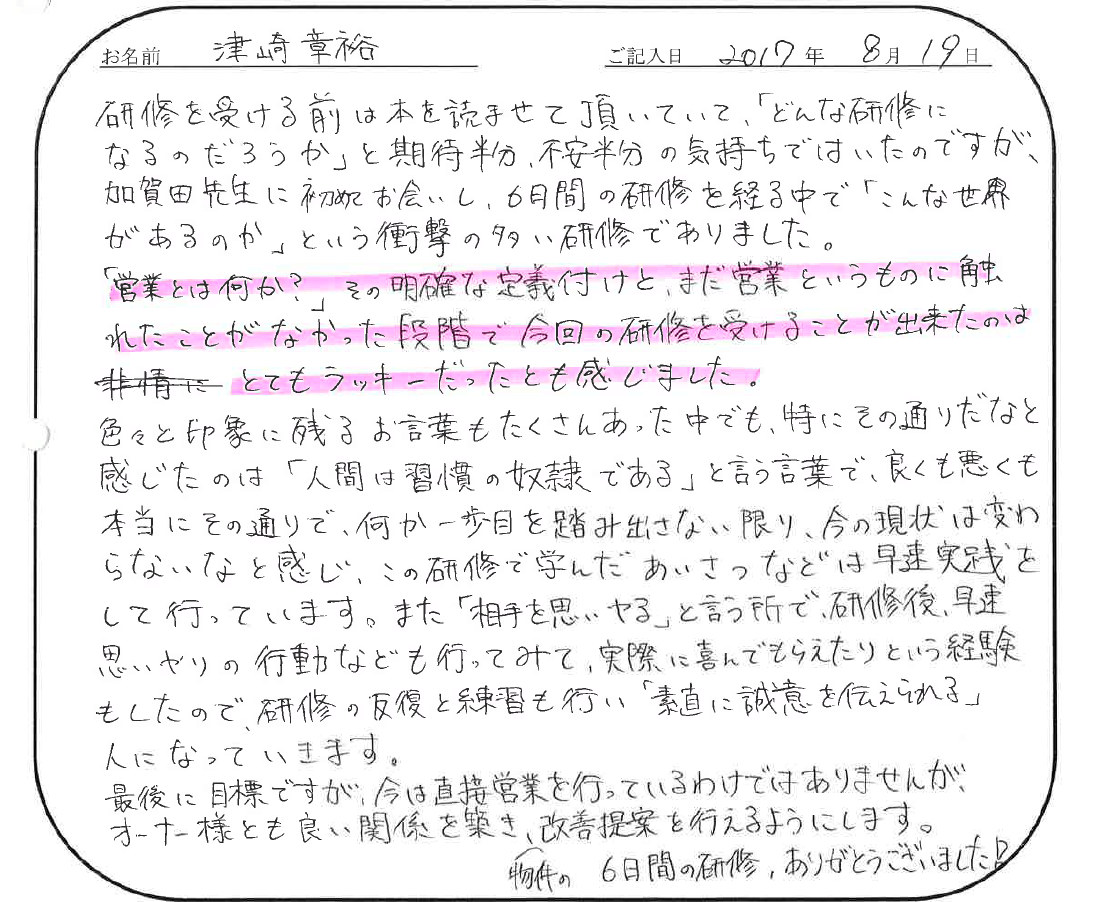 お名前 津崎章裕 ご記入日 2017年 8月19日
研修を受ける前は本を読ませて頂いていて、「どんな研修に
なるのだろうか」と期待半分、不安半分の気持ちではいたのですが、
加賀田先生に初めてお会いし、6日間の研修を経る中で「こんな世界
があるのか」という衝撃の多い研修でありました。
「営業とは何か?」その明確な定義付けと、まだ営業というものに触
れたことがなかった段階で今回の研修を受けることが出来たのは
非情に とてもラッキーだったとも感じました。
色々と印象に残るお言葉もたくさんあった中でも、特にその通りだなと
感じたのは「人間は習慣の奴隷である」と言う言葉で、良くも悪くも
本当にその通りで、何か一歩目を踏み出さない限り、今の現状は変わ
らないなと感じ、この研修で学んだあいさつなどは早速実践を
して行っています。また「相手を思いヤる」と言う所で、研修後、早速
思いヤリの行動なども行ってみて、実際に喜んでもらえたりという経験
もしたので、研修の反復と練習も行い「素直に誠意を伝えられる」
人になっていきます。
最後に目標ですが、今は直接営業を行っているわけではありませんが、
オーナー様とも良い関係を築き、改善提案を行えるようにします。
物件の 6日間の研修、ありがとうございました!